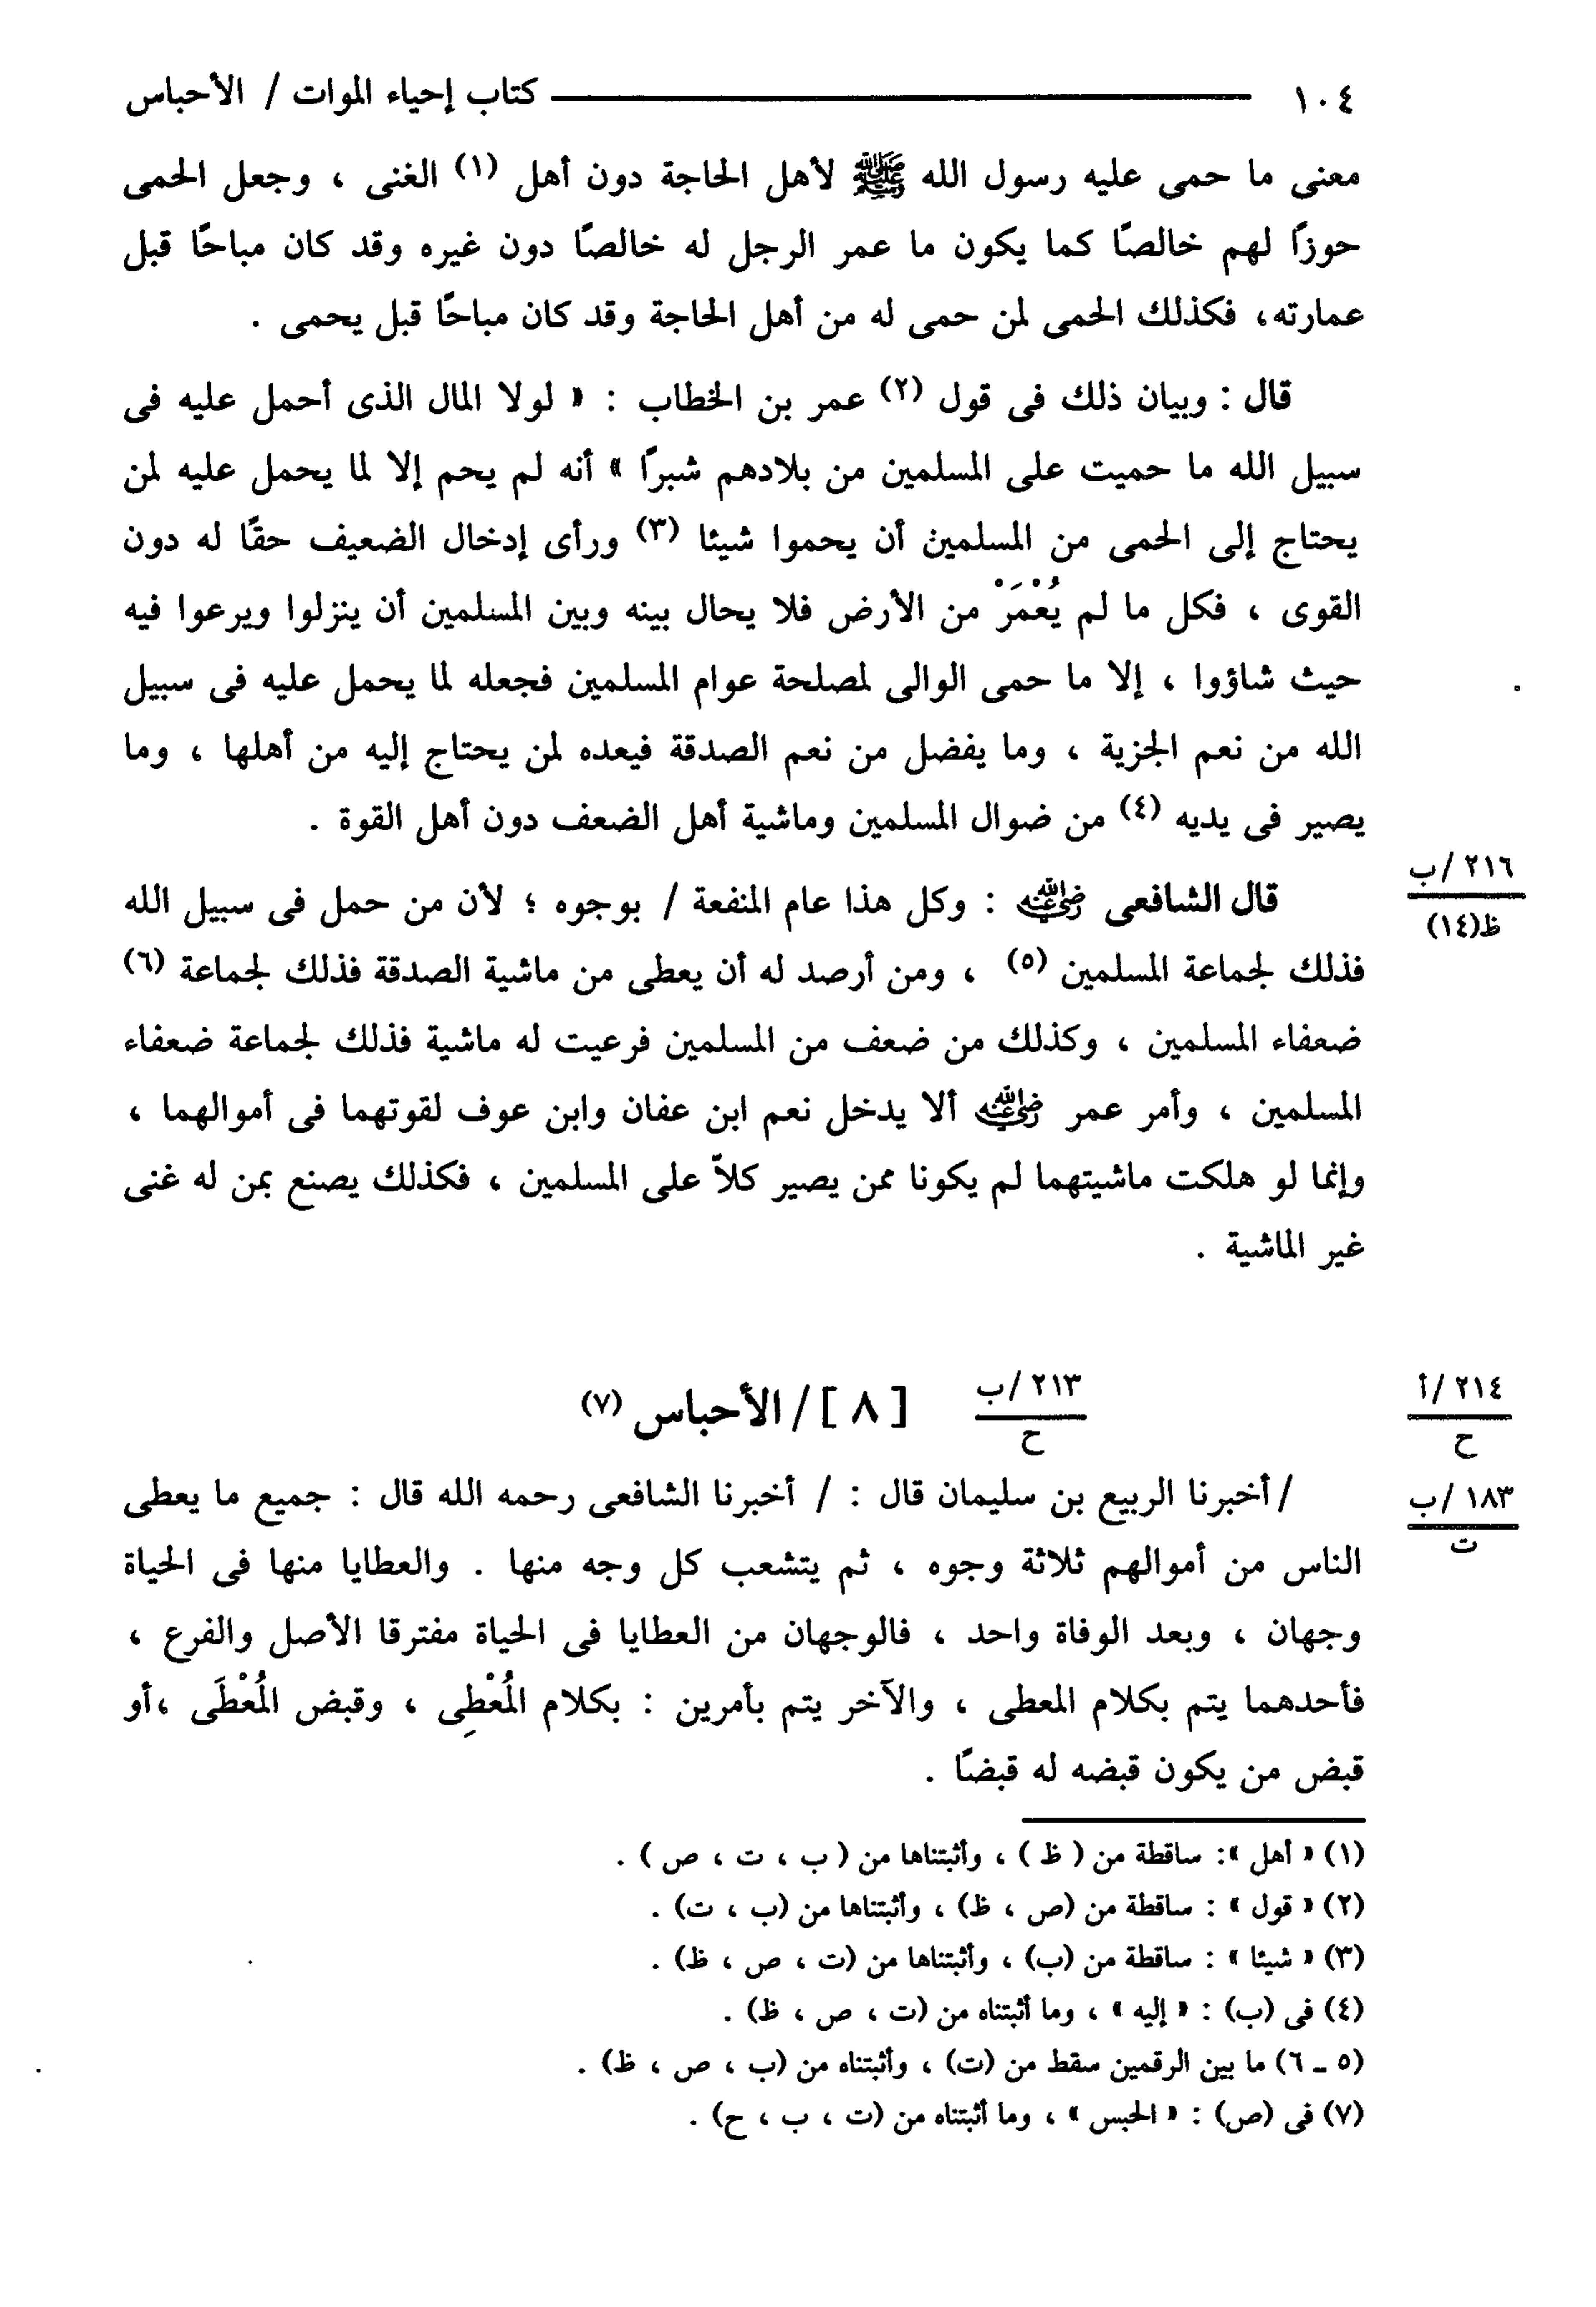 ١٠٤ ــــــــــــــــــــــــــــ كتاب إحياء الموات / الأحباس
معنى ما حمى عليه رسول الله ﷺ لأهل الحاجة دون أهل (١) الغنى ، وجعل الحمى
حوزًا لهم خالصًا كما يكون ما عمر الرجل له خالصًا دون غيره وقد كان مباحًا قبل
عمارته، فكذلك الحمى لمن حمى له من أهل الحاجة وقد كان مباحًا قبل يحمى .
قال : وبيان ذلك فى قول (٢) عمر بن الخطاب : « لولا المال الذى أحمل عليه فى
سبيل الله ما حميت على المسلمين من بلادهم شبرًا » أنه لم يحم إلا لما يحمل عليه لمن
يحتاج إلى الحمى من المسلمين أن يحموا شيئا (٣) ورأى إدخال الضعيف حقًا له دون
القوى ، فكل ما لم يُعْمَرْ من الأرض فلا يحال بينه وبين المسلمين أن ينزلوا ويرعوا فيه
حيث شاؤوا ، إلا ما حمى الوالى لمصلحة عوام المسلمين فجعله لما يحمل عليه فى سبيل
الله من نعم الجزية ، وما يفضل من نعم الصدقة فيعده لمن يحتاج إليه من أهلها ، وما
يصير فى يديه (٤) من ضوال المسلمين وماشية أهل الضعف دون أهل القوة .
٢١٦/ب
ظ(١٤)
قال الشافعى رضي الله عنه : وكل هذا عام المنفعة / بوجوه ؛ لأن من حمل فى سبيل الله
فذلك لجماعة المسلمين (٥) ، ومن أرصد له أن يعطى من ماشية الصدقة فذلك لجماعة (٦)
ضعفاء المسلمين ، وكذلك من ضعف من المسلمين فرعيت له ماشية فذلك لجماعة ضعفاء
المسلمين ، وأمر عمر رضي الله عنه ألا يدخل نعم ابن عفان وابن عوف لقوتهما فى أموالهما ،
وإنما لو هلكت ماشيتهما لم يكونا ممن يصير كلاّ على المسلمين ، فكذلك يصنع بمن له غنى
غير الماشية .
٢١٤/أ
ح
٢١٣/ب
ح
[ ٨ ] / الأحباس (٧)
١٨٣/ب
ت
/ أخبرنا الربيع بن سليمان قال : / أخبرنا الشافعى رحمه الله قال : جميع ما يعطى
الناس من أموالهم ثلاثة وجوه ، ثم يتشعب كل وجه منها . والعطايا منها فى الحياة
وجهان ، وبعد الوفاة واحد ، فالوجهان من العطايا فى الحياة مفترقا الأصل والفرع ،
فأحدهما يتم بكلام المعطى ، والآخر يتم بأمرين : بكلام المُعْطِى ، وقبض المُعْطَى ،أو
قبض من يكون قبضه له قبضًا .
(١) « أهل »: ساقطة من ( ظ ) ، وأثبتناها من ( ب ، ت ، ص ) .
(٢) « قول » : ساقطة من (ص ، ظ) ، وأثبتناها من (ب ، ت) .
(٣) « شيئا » : ساقطة من (ب) ، وأثبتناها من (ت ، ص ، ظ) .
(٤) فى (ب) : « إليه » ، وما أثبتناه من (ت ، ص ، ظ) .
(٥ ـ ٦) ما بين الرقمين سقط من (ت) ، وأثبتناه من (ب ، ص ، ظ) .
(٧) فى (ص) : « الحبس » ، وما أثبتناه من (ت ، ب ، ح) .